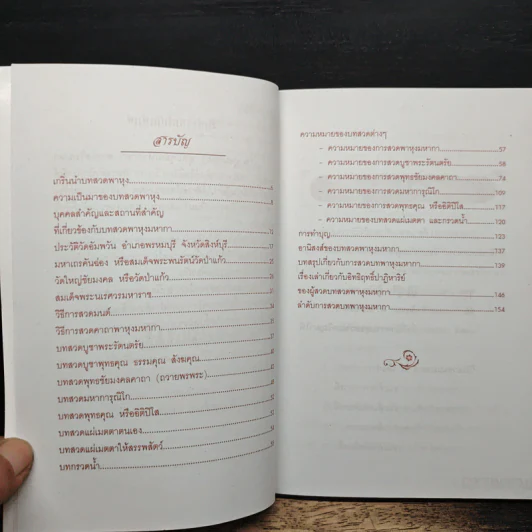 สารบัญ
เกริ่นนำบทสวดพาหุง
ความเป็นมาของบทสวดพาหุง
บุคคลสำคัญและสถานที่สำคัญ
ที่เกี่ยวข้องกับบทสวดพาหุงมหากา
ประวัติวัดอัมพวัน อำเภอพรหมบุรี จังหวัดสิงห์บุรี
มหาเถรคันฉ่อง หรือสมเด็จพระพนรัตน์วัดป่าแก้ว
วัดใหญ่ชัยมงคล หรือวัดป่าแก้ว
สมเด็จพระนเรศวรมหาราช
วิธีการสวดมนต์
วิธีการสวดคาถาพาหุงมหากา
บทสวดบูชาพระรัตนตรัย
บทสวดบูชาพุทธคุณ ธรรมคุณ สังฆคุณ
บทสวดพุทธชัยมงคลคาถา (ถวายพรพระ)
บทสวดมหาการุณิโก
บทสวดพุทธคุณ หรืออิติปิโส
บทสวดแผ่เมตตาตนเอง
บทสวดแผ่เมตตาให้สรรพสัตว์
บทกรวดน้ำ
ความหมายของบทสวดต่างๆ
– ความหมายของการสวดพาหุงมหากา 57
– ความหมายของการสวดบูชาพระรัตนตรัย 58
– ความหมายของการสวดพุทธชัยมงคลคาถา 74
– ความหมายของการสวดมหาการุณิโก 109
– ความหมายของการสวดพุทธคุณ หรืออิติปิโส 117
– ความหมายของบทสวดแผ่เมตตา และกรวดน้ำ 120
การทำบุญ 123
อานิสงส์ของบทสวดพาหุงมหากา 137
บทสรุปเกี่ยวกับการสวดบทพาหุงมหากา 139
เรื่องเล่าเกี่ยวกับอิทธิฤทธิ์ปาฏิหาริย์
ของผู้สวดบทสวดพาหุงมหากา 146
ลำดับการสวดบทพาหุงมหากา 154